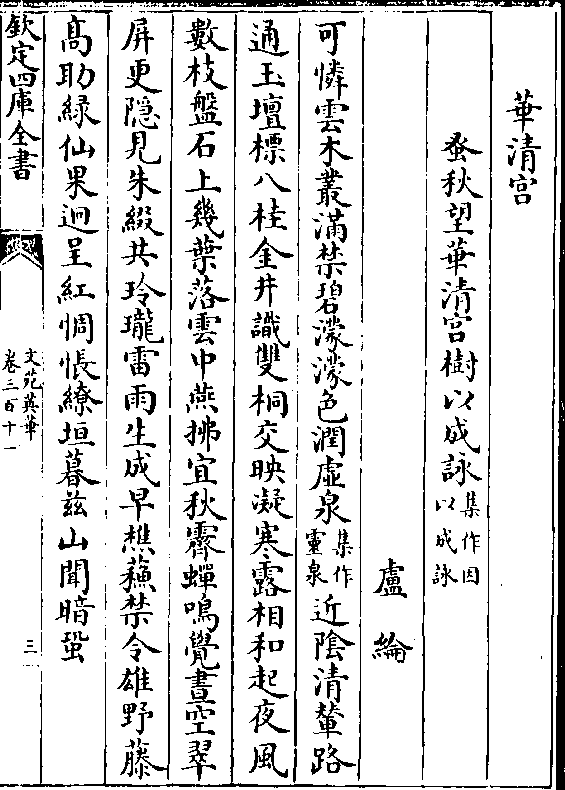 華清宮
蚤秋望華清宮樹以成詠集作因以成詠
盧綸
可憐雲木叢滿禁碧濛濛色潤虛泉集作靈泉近隂清輦路
通玉壇標八桂金井識雙桐交映凝寒露相和起夜風
數枝盤石上幾葉落雲中燕拂宜秋霽蟬鳴覺晝空翠
屏更隠見朱綴共玲瓏雷雨生成早樵蘓禁令雄野藤
髙助緑仙果迥呈紅惆悵繚垣暮兹山聞暗蛩
欽定四庫全書
文苑英華
卷三百十一
三